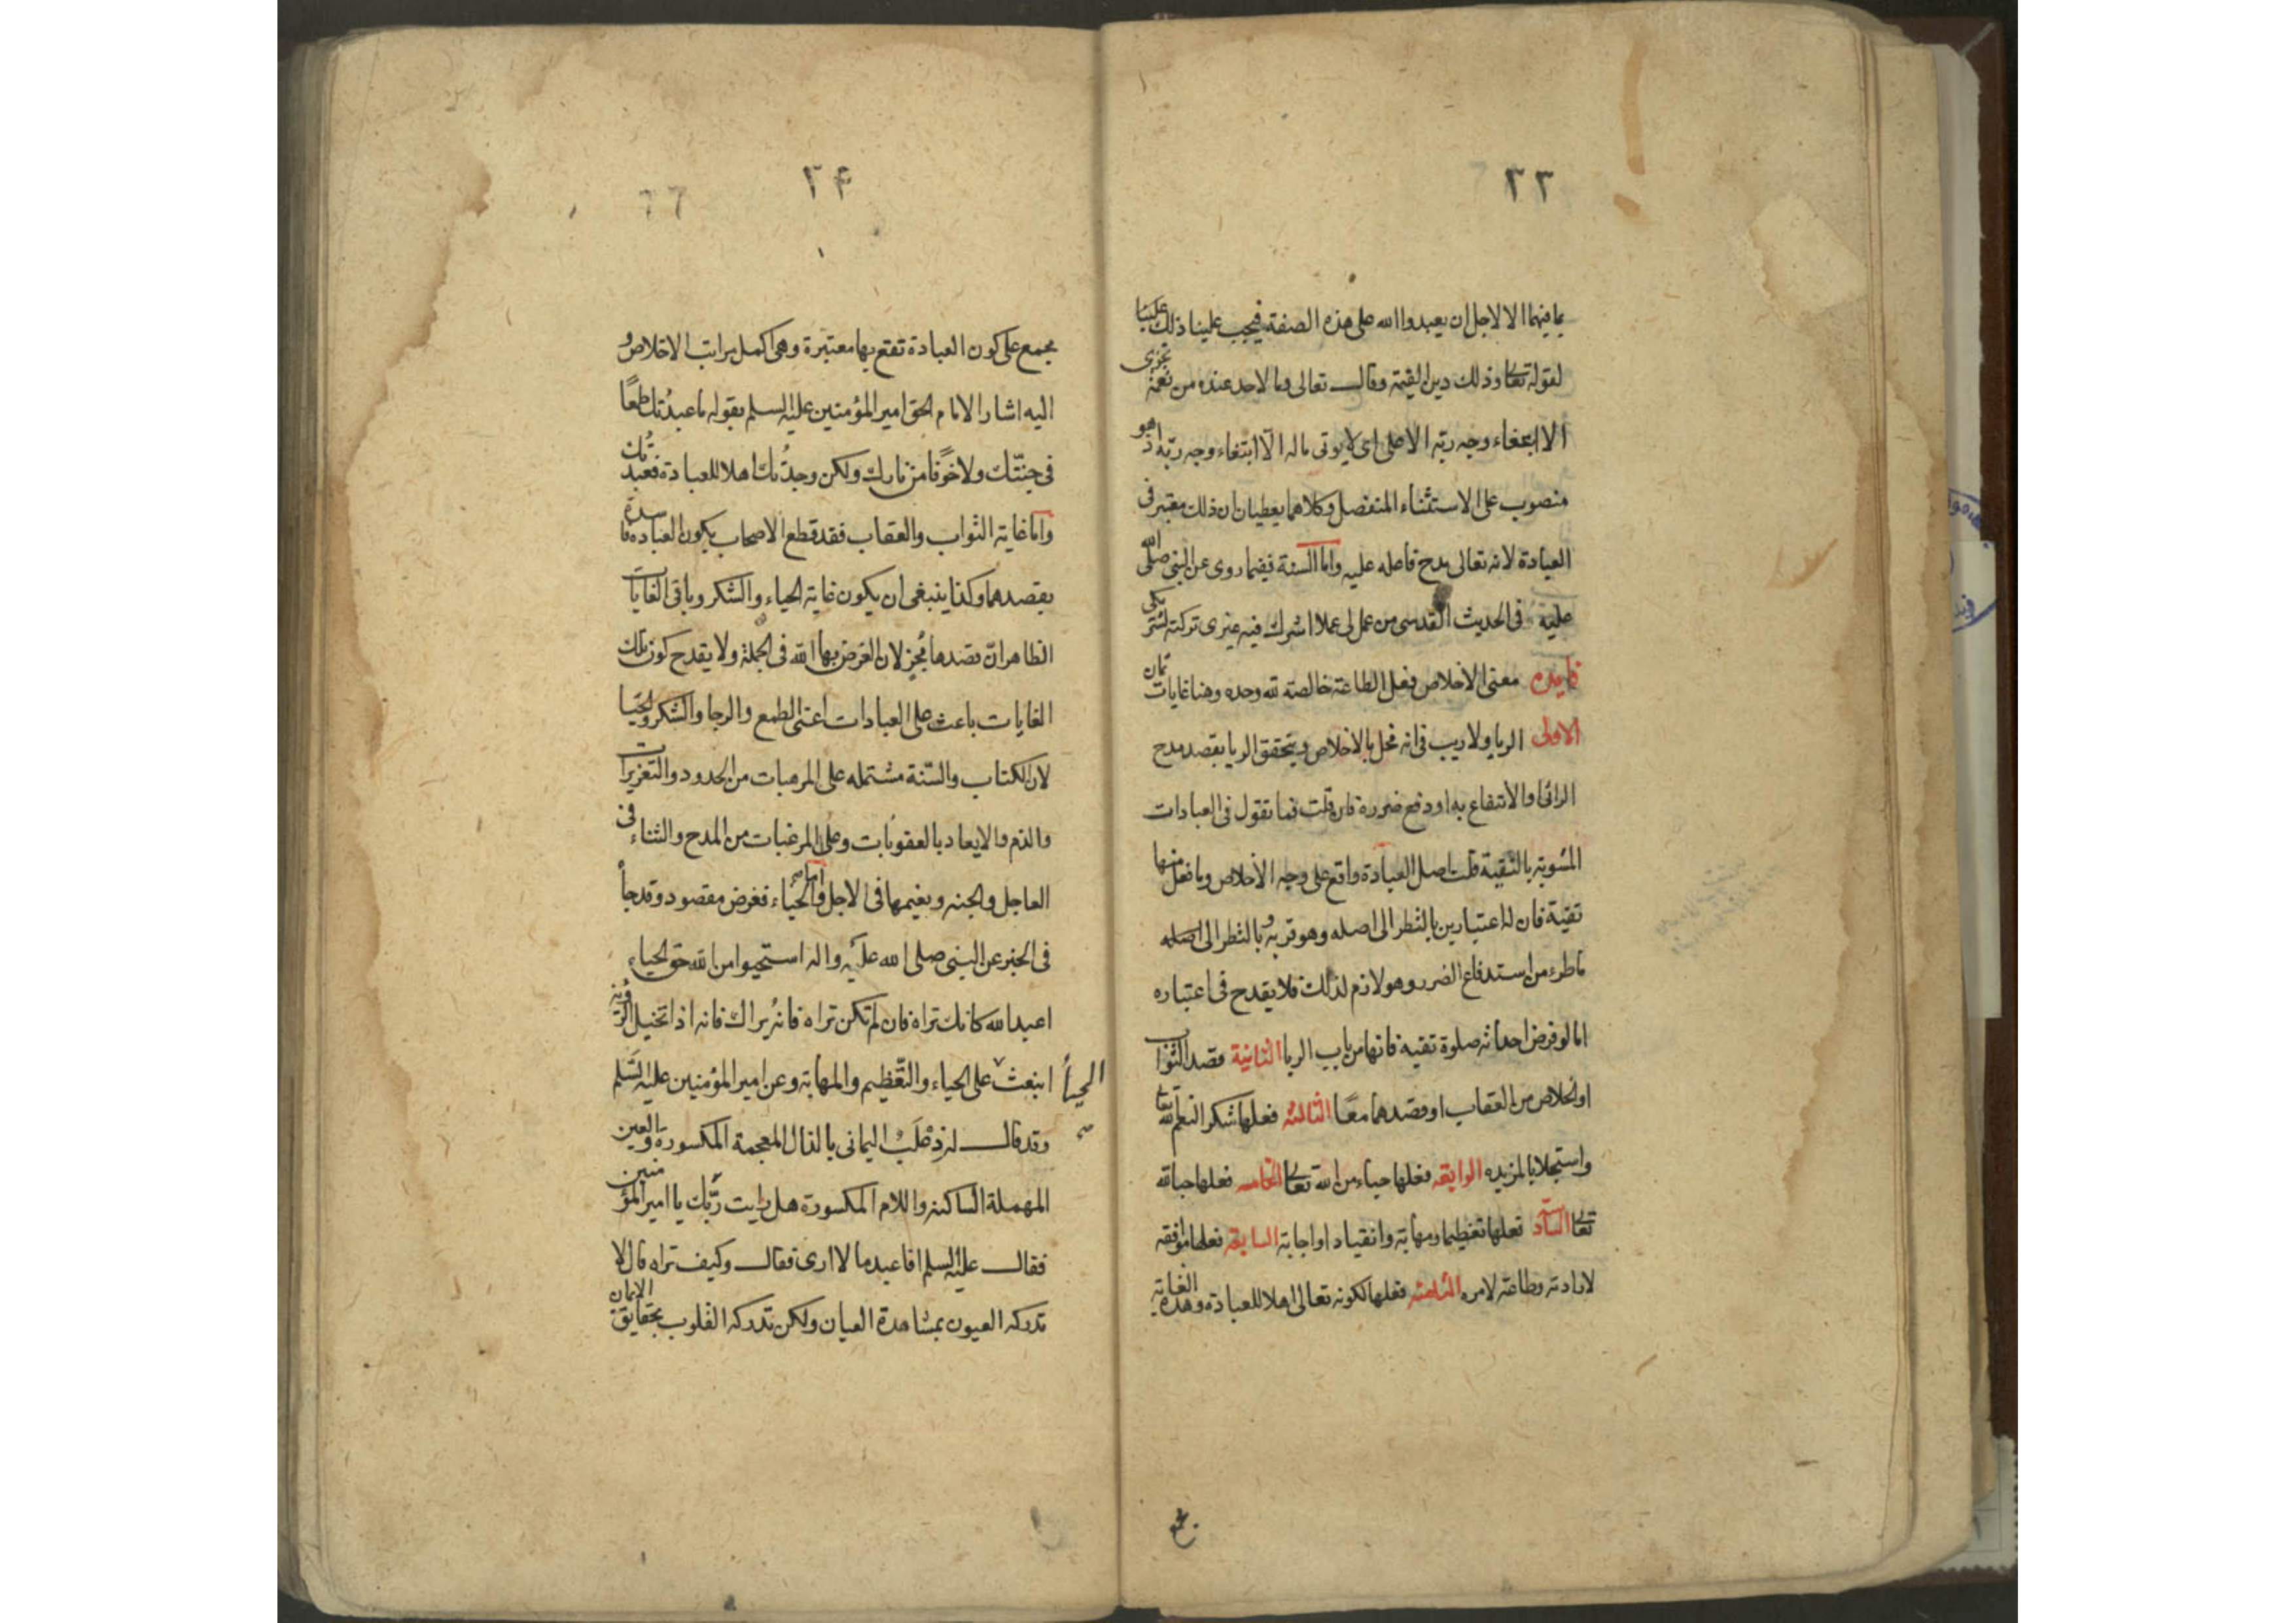 ٢٣
بما فيهما الا لاجل ان يعبدوا الله على هذه الصفة فيجب علينا ذلك علينا
لقوله تعالى وذلك دين القيمة وقال تعالى وما لاحد عنده من نعمة تجزى
الا ابتغاء وجه ربه الاعلى اى لا يوتى ماله الا ابتغاء وجه ربه اذ هو
منصوب على الاستثناء المنفصل وكلاهما يعطيان ان ذلك معتبر فى
العبادة لانه تعالى مدح فاعله عليه واما السنة فيما روى عن النبى صلى الله
عليه فى الحديث القدسى من عمل لى عملا اشرك فيه غيرى تركته لشريكى
فايده معنى الاخلاص فعل الطاعة خالصة لله وحده وهنا غايات ثمان
الاولى الريا ولا ريب فى انه مخل بالاخلاص ويتحقق الريا بقصد مدح
الرائى او الانتفاع به او دفع ضرره فان قلت فما تقول فى العبادات
المشوبة بالتقية قلت اصل العبادة واقع على وجه الاخلاص وما فعل منها
تقية فان له اعتبارين بالنظر الى اصله وهو قربة وبالنظر الى اصله
ما طرء من استدفاع الضرر وهو لازم لذلك فلا يقدح فى اعتباره
اما لو فرض احداثه صلوة تقية فانها من باب الريا الثانية قصد الثواب
او الخلاص من العقاب او قصدهما معًا الثالثه فعلها شكر النعم الله تعالى
واستجلابا لمزيده الرابعة فعلها حياء من الله تعالى الخامسه فعلها حبا لله
تعالى السادسة فعلها تعظيما ومهابة وانقياد او اجابة السابعة فعلها موافقه
لارادته وطاعة لامره الثامنه فعلها لكونه تعالى اهلا للعبادة وهذه الغاية
مجمع
٢۴
مجمع على كون العبادة تقع بها معتبرة وهى اكمل مراتب الاخلاص و
اليه اشار الامام الحق امير المؤمنين عليه السلم بقوله ما عبدتك طمعًا
فى جنتك ولا خوفًا من نارك ولكن وجدتك اهلا للعبادة فعبدتك
واما غاية الثواب والعقاب فقد قطع الاصحاب بكون العباده فاسدة
بقصدهما وكذا ينبغى ان يكون غاية الحياء والشكر وباقى الغايات
الظاهر ان قصدها مُجزٍ لان الغرض بها الله فى الجملة ولا يقدح كون تلك
الغايات باعثه على العبادات اعنى الطمع والرجا والشكر والحيا
لان الكتاب والسنة مشتمله على المرهبات من الحدود والتعزيرات
والذم والايعاد بالعقوبات وعلى المرغبات من المدح والثناء فى
العاجل والجنه ونعيمها فى الاجل واما الحياء فغرض مقصود وقد جأ
فى الخبر عن النبى صلى الله عليه واله استحيوا من الله حق الحياء
اعبد الله كانك تراه فان لم تكن تراه فانه يراك فانه اذا تخيل الرؤية
انبعث على الحياء والتعظيم والمهابة وعن امير المؤمنين عليه السلم
وقد قال له ذعلب اليمانى بالذال المعجمة المكسورة والعين
المهملة الساكنه واللام المكسورة هل رايت ربك يا امير المؤمنين
فقال عليه السلم افاعبد ما لا ارى فقال وكيف تراه قال لا
تدركه العيون بمشاهدة العيان ولكن تدركه القلوب بحقايق الايمان